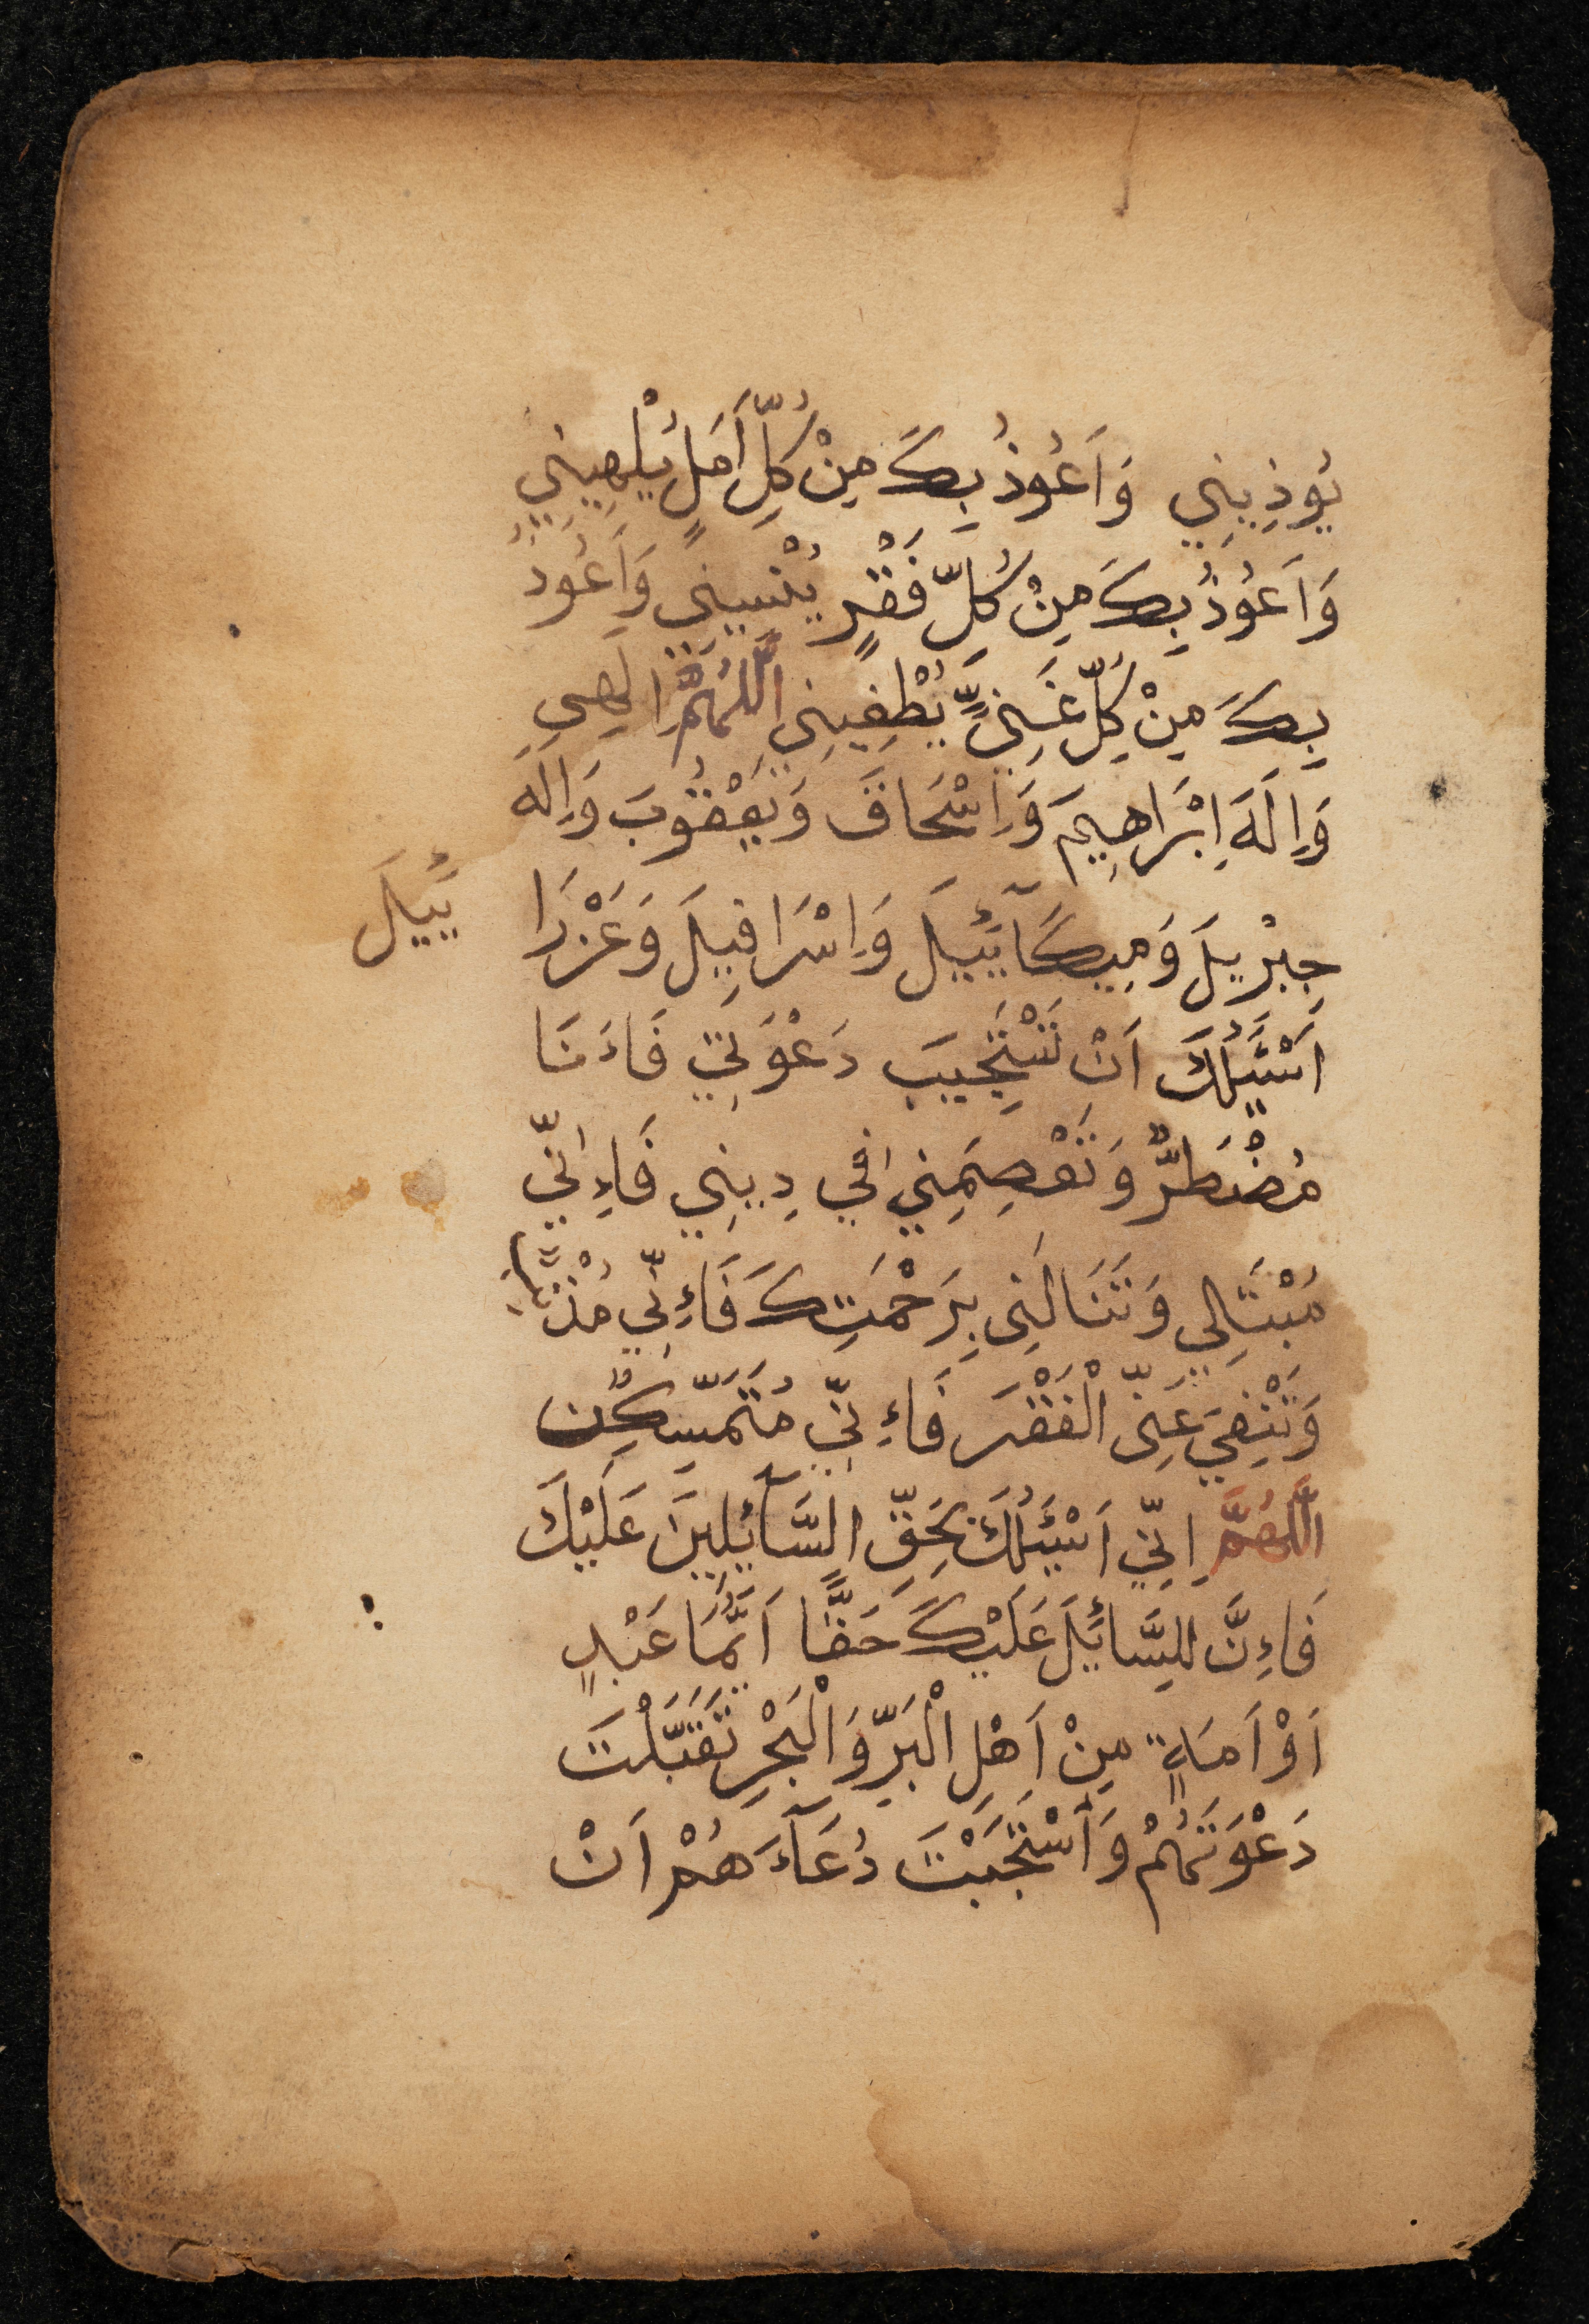 يُوذِينِي وَاَعُوذُ بِكَ مِنْ كُلِّ أَمَلٍ يُلْهِينِي
وَاَعُوذُ بِكَ مِنْ كُلِّ فَقْرٍ يُنْسِينِي وَاَعُوذُ
بِكَ مِنْ كُلِّ غَنِيٍّ يُطْغِينِي اَللَّهُمَّ اِلَهِي
وَاِلَهَ اِبْرَاهِيمَ وَاِسْحَاقَ وَيَعْقُوبَ وَاِلَهَ
جِبْرِيلَ وَمِيكَآئِيلَ وَاِسْرَافِيلَ وَعَزْرَا ئِيلَ
اَسْئَلُكَ اَنْ تَسْتَجِيبَ دَعْوَتِي فَاَنَا
مُضْطَرٌّ وَتَعْصِمَنِي فِي دِينِي فَاِنِّي
مُبْتَلِي وَتَنَالَنِي بِرَحْمَتِكَ فَاِنِّي مُذْنِبٌ
وَتَنْفِيَ عَنِّي الْفَقْرَ فَاِنِّي مُتَمَسْكِنٌ
اَللَّهُمَّ اِنِّي اَسْئَلُكَ بِحَقِّ السَّآئِلِينَ عَلَيْكَ
فَاِنَّ لِلسَّائِلَ عَلَيْكَ حَقًّا اَيُّمَا عَبْدٍ
اَوْ اَمَةٍ مِنْ اَهْلِ الْبَرِّ وَالْبَحْرِ تَقَبَّلْتَ
دَعْوَتَهُمْ وَاَسْتَجَبْتَ دُعَآءَهُمْ اَنْ